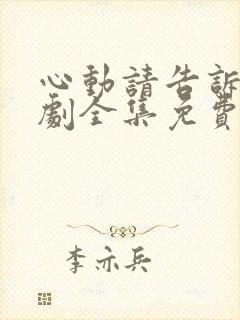 心動請告訴
劇全集免費
李亦兵